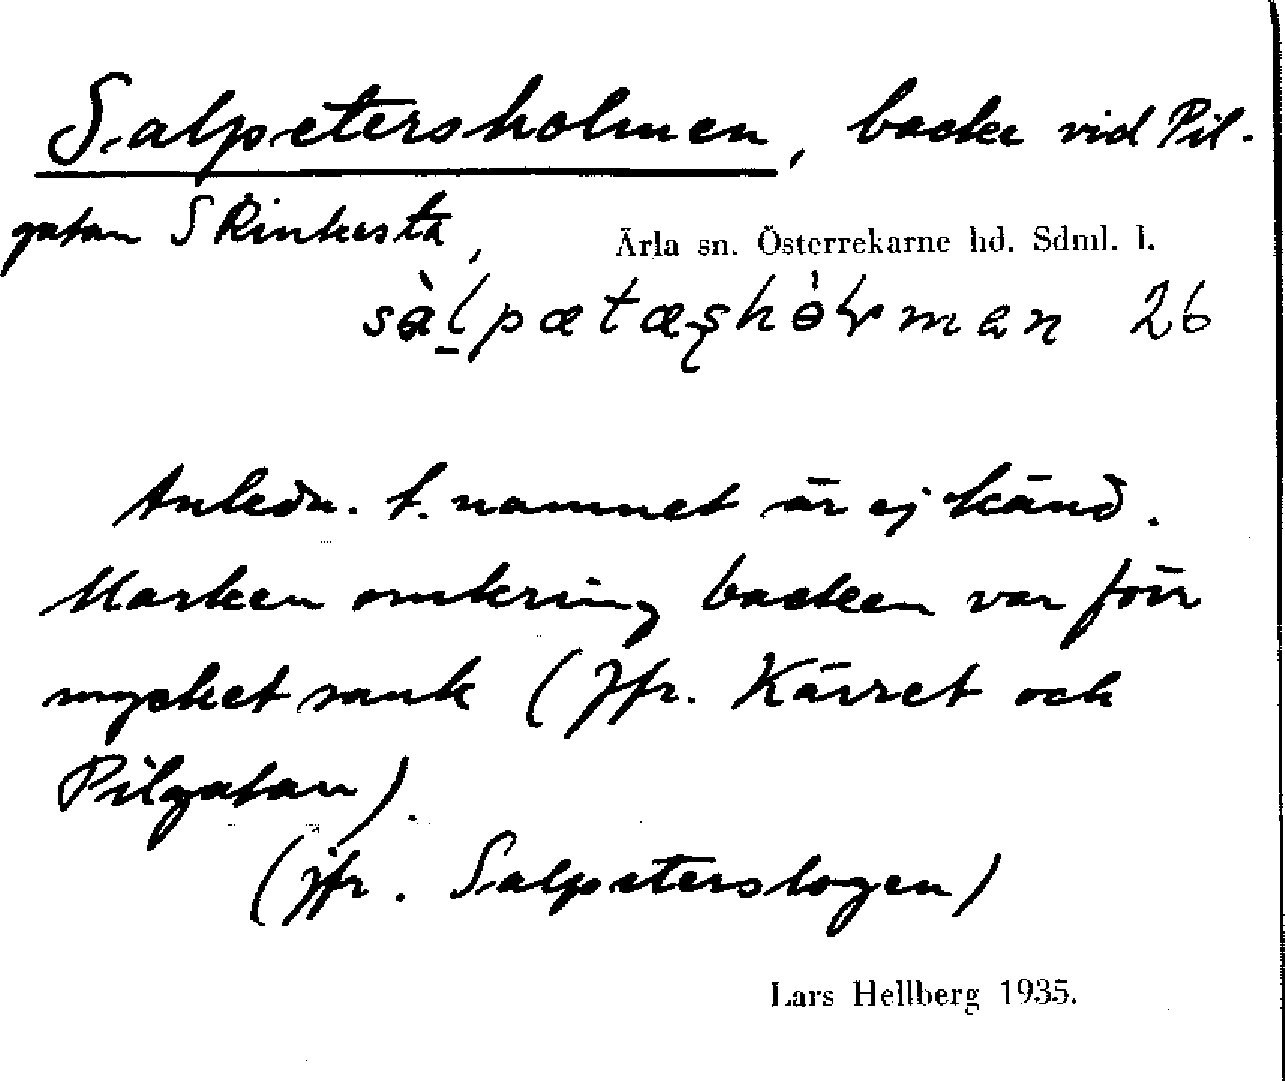 Salpetersholmen, backe vid Pil-
gatan S Rinkesta,
Ärla sn. Österrekarne hd. Sdml. l.
26
Anledn. t. namnet är ej känd.
Marken omkring backen var förr
mycket sank (Jfr. Kärret och
Pilgatan).
(jfr. Salpeterslogen)
Lars Hellberg 1935.